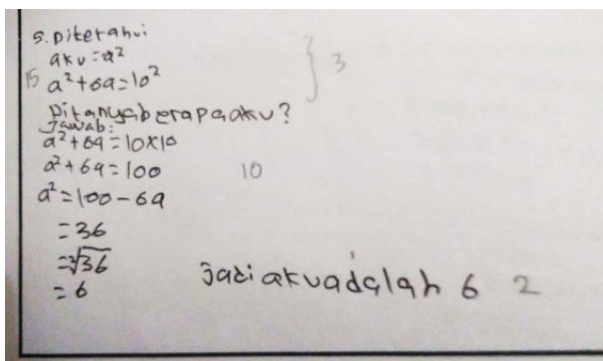 5. Diketahui
aku = a²
15 a² + 6a = 10² } 3
Ditanya berapa aku?
Jawab:
a² + 6a = 10x10
a² + 6a = 100 10
a² = 100 - 6a
= 36
= ²√36
= 6 jadi aku adalah 6 2